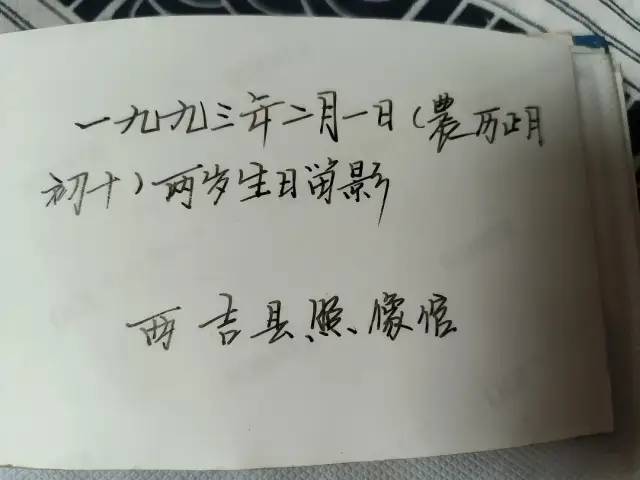 一九九三年二月一日(農历正月
初十)两岁生日留影
西吉县照像馆